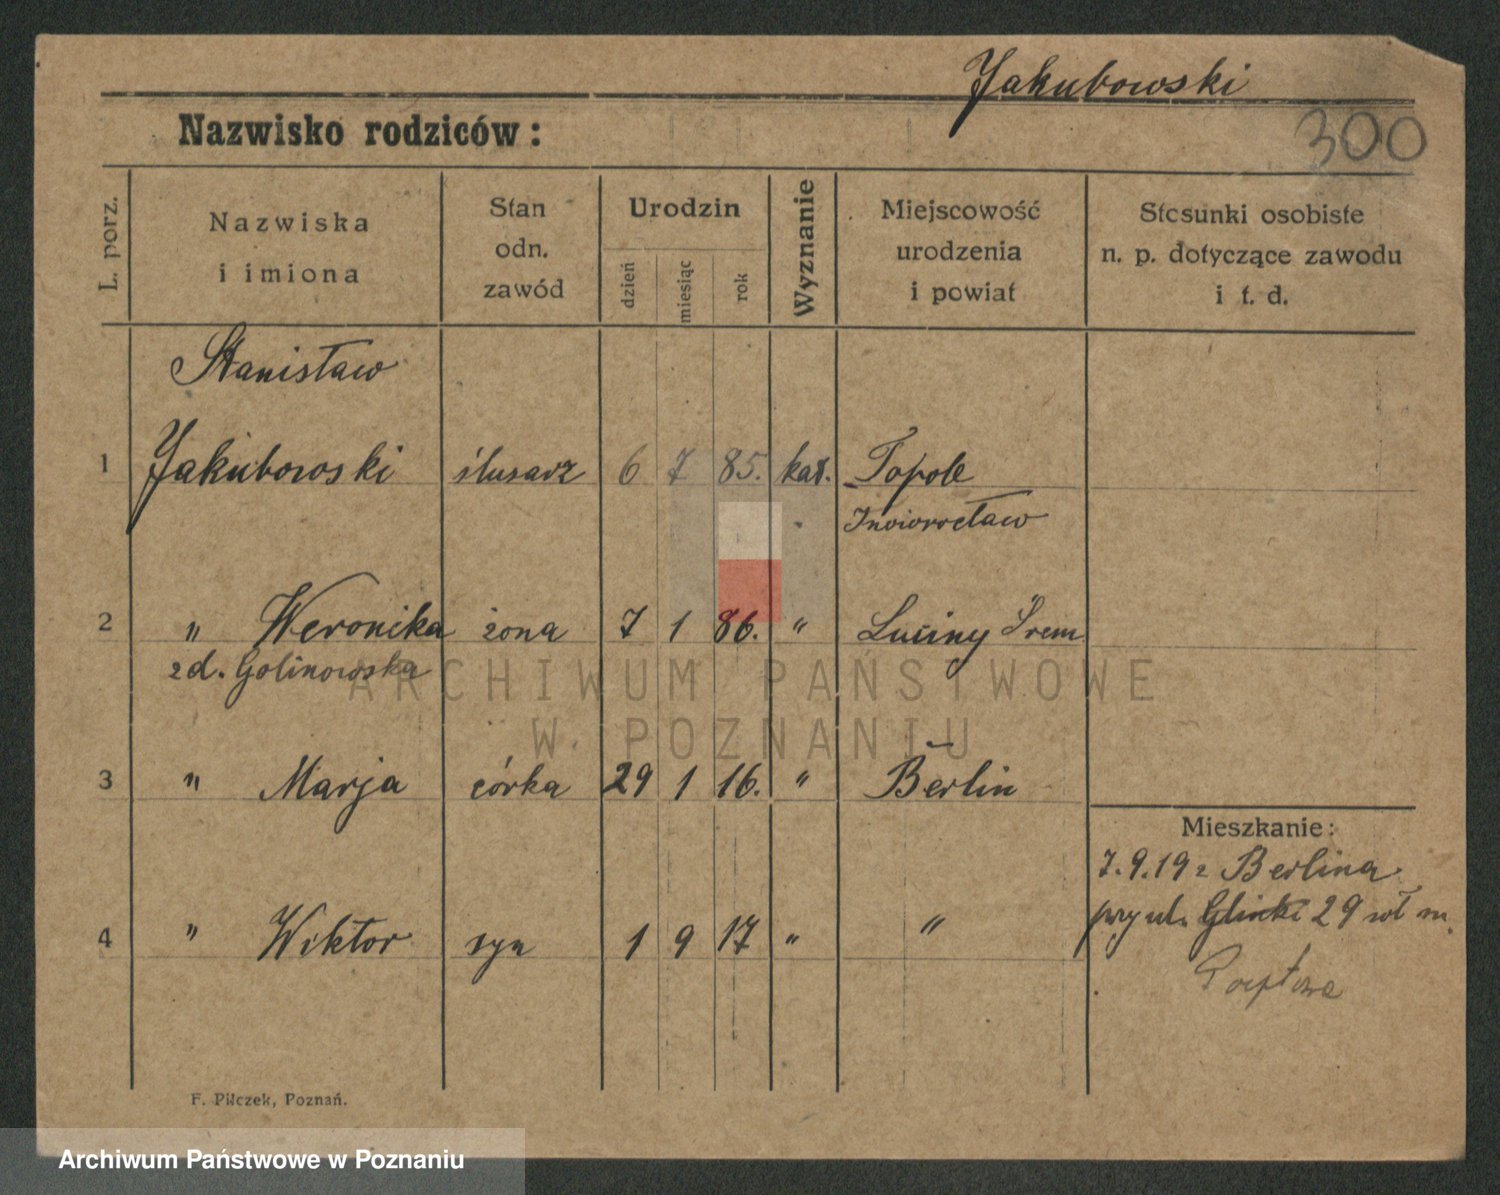 Jakubowski
300
Nazwisko rodziców:
L. porz.
Nazwiska
i imiona
Stan
odn.
zawód
Urodzin
dzień
miesiąc
rok
Wyznanie
Miejscowość
urodzenia
i powiat
Stosunki osobiste
n. p. dotyczące zawodu
i t. d.
Stanisław
1 Jakubowski ślusarz 6 7 85. kat. Topole
Inowrocław
2 " Weronika żona 7 1 86. " Luciny Śrem
zd. Golinowska
ARCHIWUM PAŃSTWOWE
W POZNANIU
3 " Marja córka 29 1 16. " Berlin
Mieszkanie:
7.9.19 z Berlina
przy ul. Glinki 29 wł m.
4 " Wiktor syn 1 9 17 " "
F. Pilczek, Poznań.
Archiwum Państwowe w Poznaniu